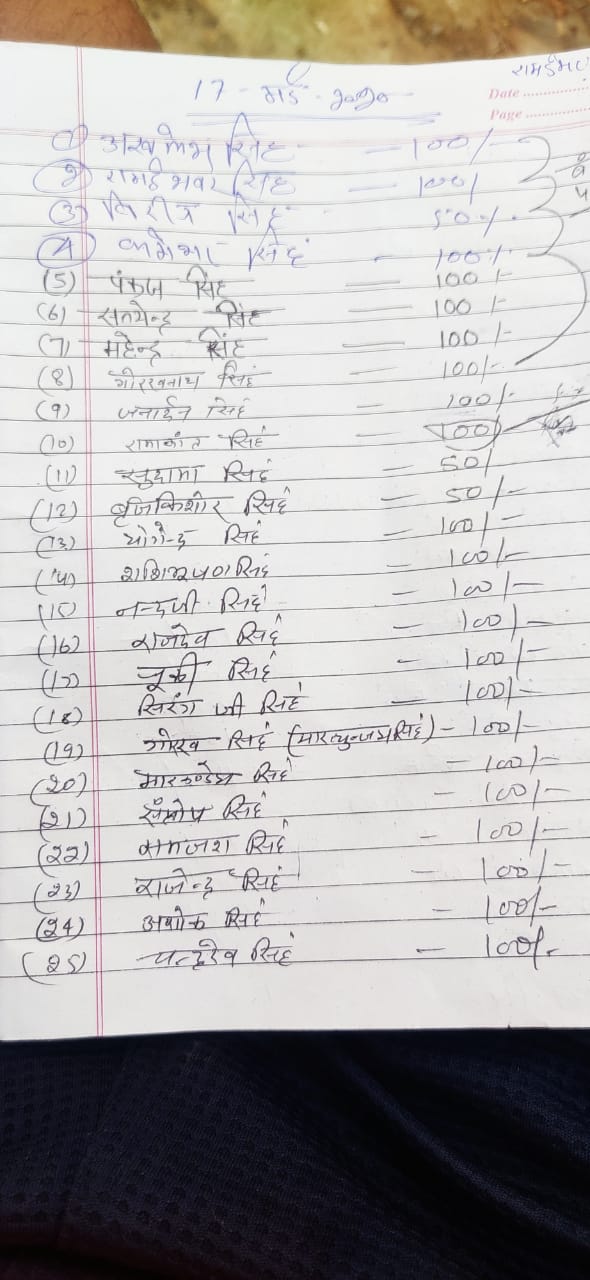 17 - मई - २०२०
Date
Page
(1) अखिलेश सिंह - 100/-
(2) रामईश्वर सिंह - 100/
(3) सिंह 50/-
(4) सिंह - 100/-
(5) पंकज सिंह - 100/-
(6) सत्येन्द्र सिंह - 100/-
(7) महेन्द्र सिंह - 100/-
(8) गोरखनाथ सिहं - 100/-
(9) जनार्दन सिहं - 100/-
(10) रामाकांत सिहं - 100/
(11) सुदामा सिहं - 50/
(12) बृजकिशोर सिहं - 50/-
(13) योगेन्द्र सिहं - 100/-
(14) शशिभूषण सिहं - 100/-
(15) नन्दजी सिहं - 100/-
(16) राजदेव सिहं - 100/-
(17) सिहं - 100/-
(18) सिरंग जी सिहं - 100/-
(19) गोरख सिहं (मारत्युन्जय सिहं) - 100/-
(20) मारकण्डेय सिहं - 100/-
(21) संतोष सिहं - 100/-
(22) रामजश सिहं - 100/-
(23) राजेन्द्र सिहं - 100/-
(24) अशोक सिहं - 100/-
(25) चन्द्रदेव सिहं - 100/-